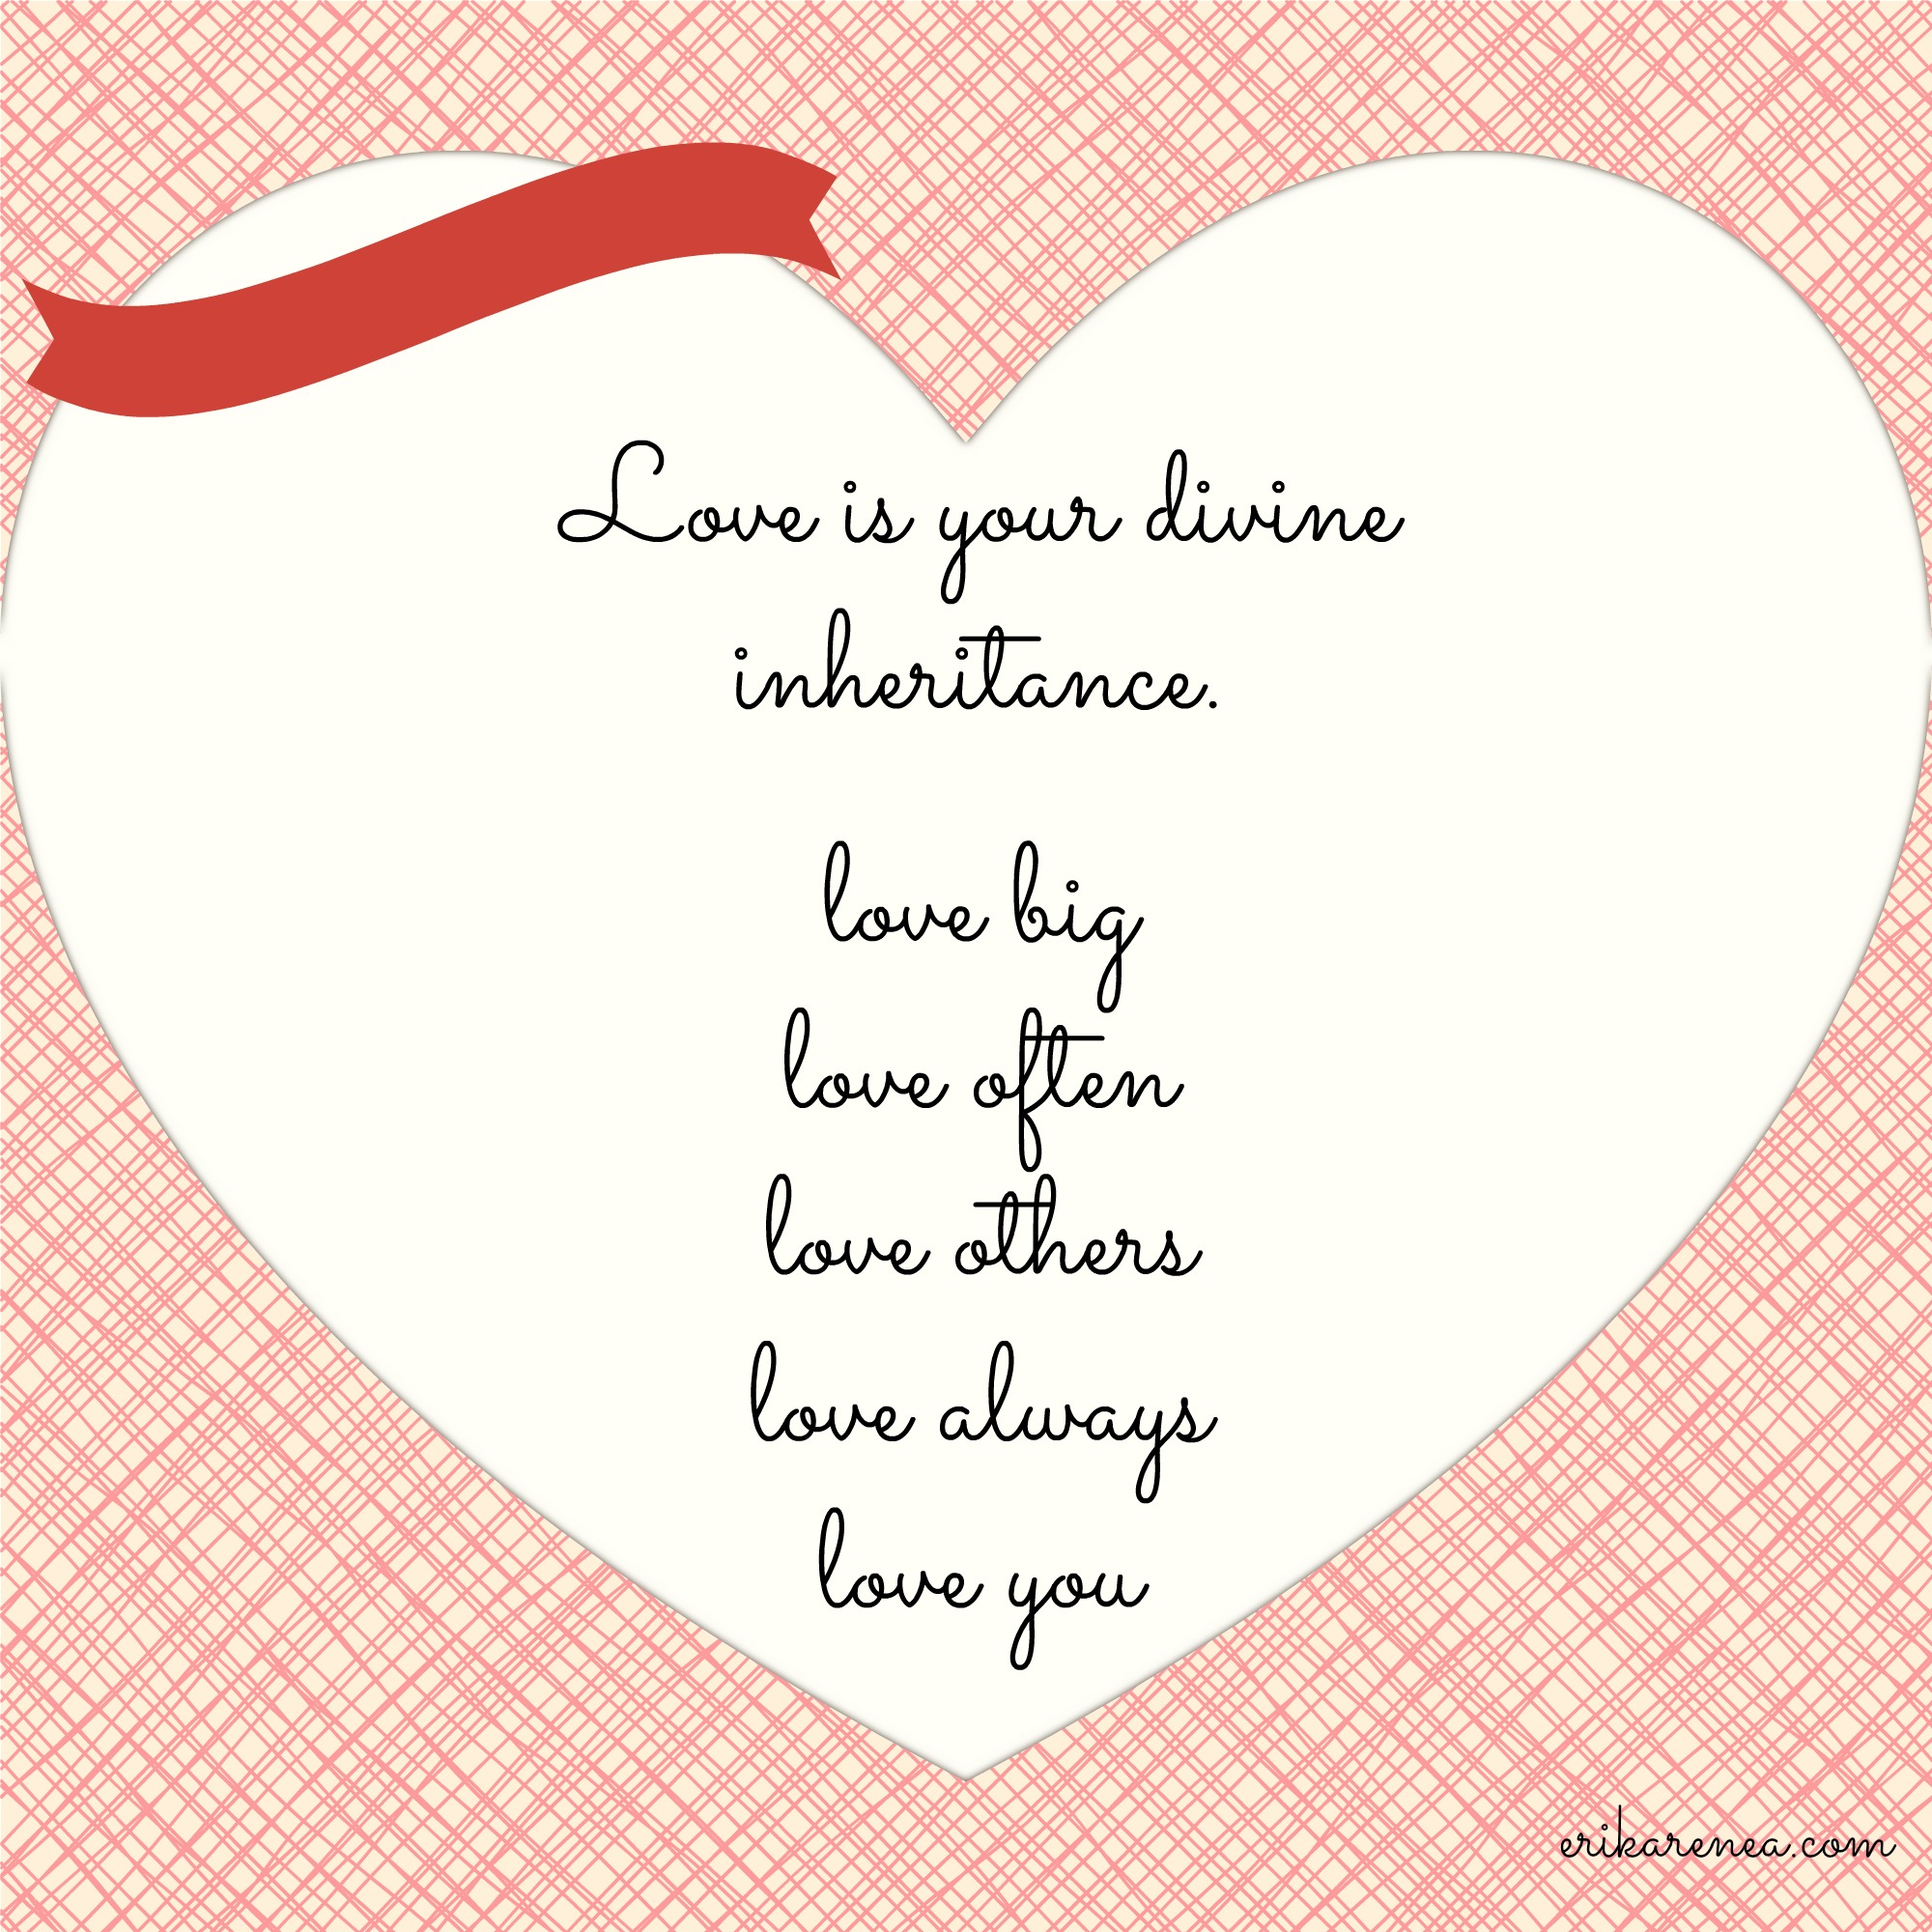 Love is your divine
inheritance.
love big
love often
love others
love always
love you
erikarenea.com